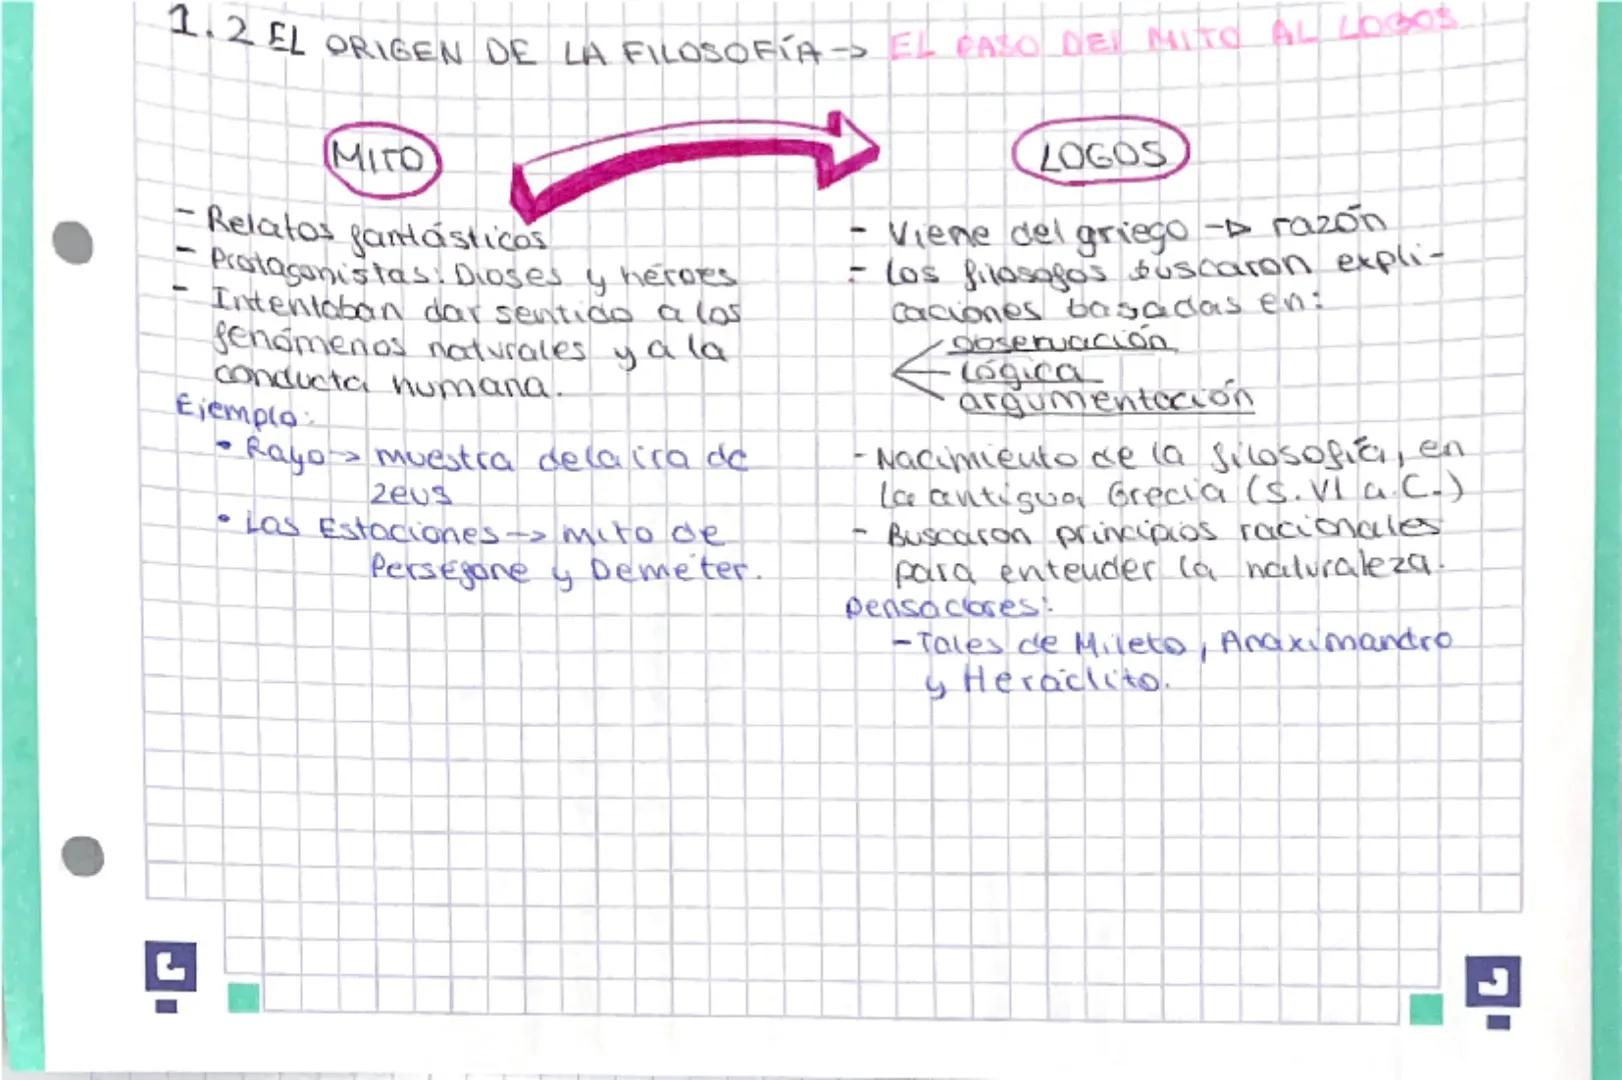 1.2 EL ORIGEN DE LA FILOSOFÍA -> EL PASO DEL MITO AL LOGOS
MITO
- Relatos fantásticos
- Protagonistas: Dioses y héroes
- Intentaban dar sentido a los
fenómenos naturales y a la
conducta humana.
Ejemplo:
• Rayo -> muestra de la ira de
Zeus
• Las Estaciones -> mito de
Perséfone y Deméter.
LOGOS
- Viene del griego -> razón
- Los filósofos buscaron expli-
caciones basadas en:
observación
lógica
argumentación
- Nacimiento de la filosofía, en
la antigua Grecia (S. VI a.C.)
- Buscaron principios racionales
para entender la naturaleza.
Pensadores:
- Tales de Mileto, Anaximandro
y Heráclito.